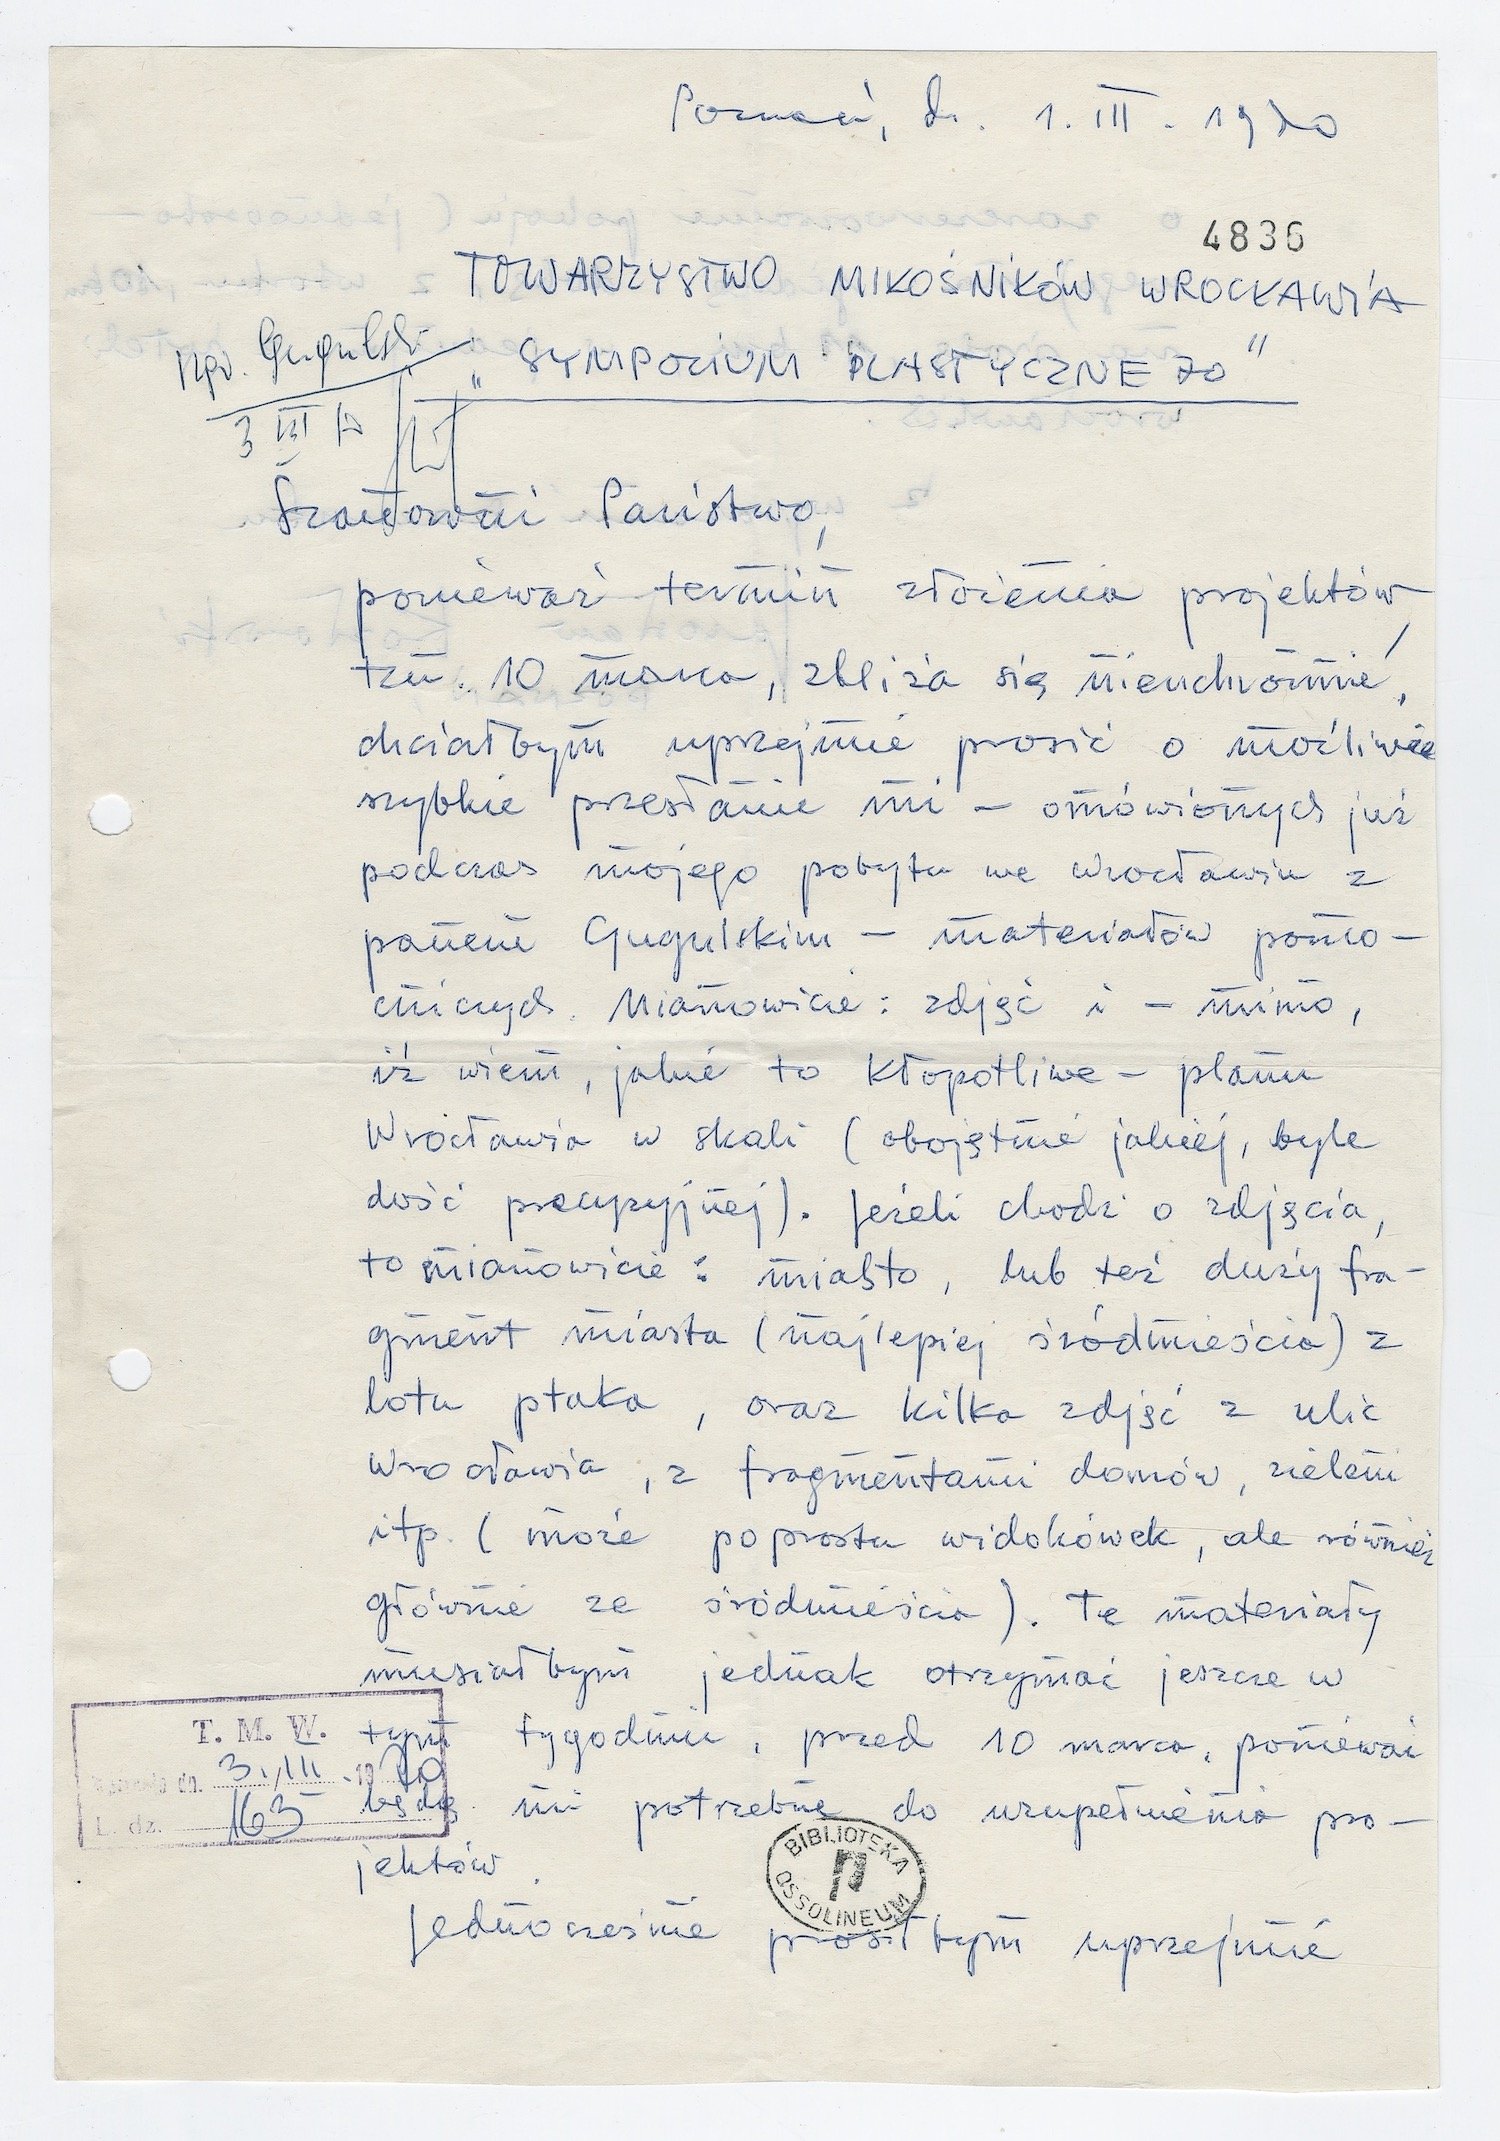 Poznań, dn. 1. III. 1970
4836
TOWARZYSTWO MIŁOŚNIKÓW WROCŁAWIA
"SYMPOZIUM PLASTYCZNE 70"
Kol. Gugulski
3 III 70
Szanowni Państwo,
ponieważ termin złożenia projektów,
tzn. 10 marca, zbliża się nieuchronnie,
chciałbym uprzejmie prosić o możliwie
szybkie przesłanie mi – omówionych już
podczas mojego pobytu we Wrocławiu z
panem Gugulskim – materiałów pomo-
cniczych. Mianowicie: zdjęć i – mimo,
iż wiem, jakie to kłopotliwe – planu
Wrocławia w skali (obojętnie jakiej, byle
dość precyzyjnej). Jeżeli chodzi o zdjęcia,
to mianowicie: miasto, lub też duży fra-
gment miasta (najlepiej śródmieścia) z
lotu ptaka, oraz kilka zdjęć z ulic
Wrocławia, z fragmentami domów, zieleni
itp. (może poprostu widokówek, ale również
głównie ze śródmieścia). Te materiały
musiałbym jednak otrzymać jeszcze w
tym tygodniu, przed 10 marca, ponieważ
będą mi potrzebne do uzupełnienia pro-
jektów.
Jednocześnie prosiłbym uprzejmie
T. M. W.
dn. 3. III. 1970
L. dz. 163
BIBLIOTEKA
OSSOLINEUM